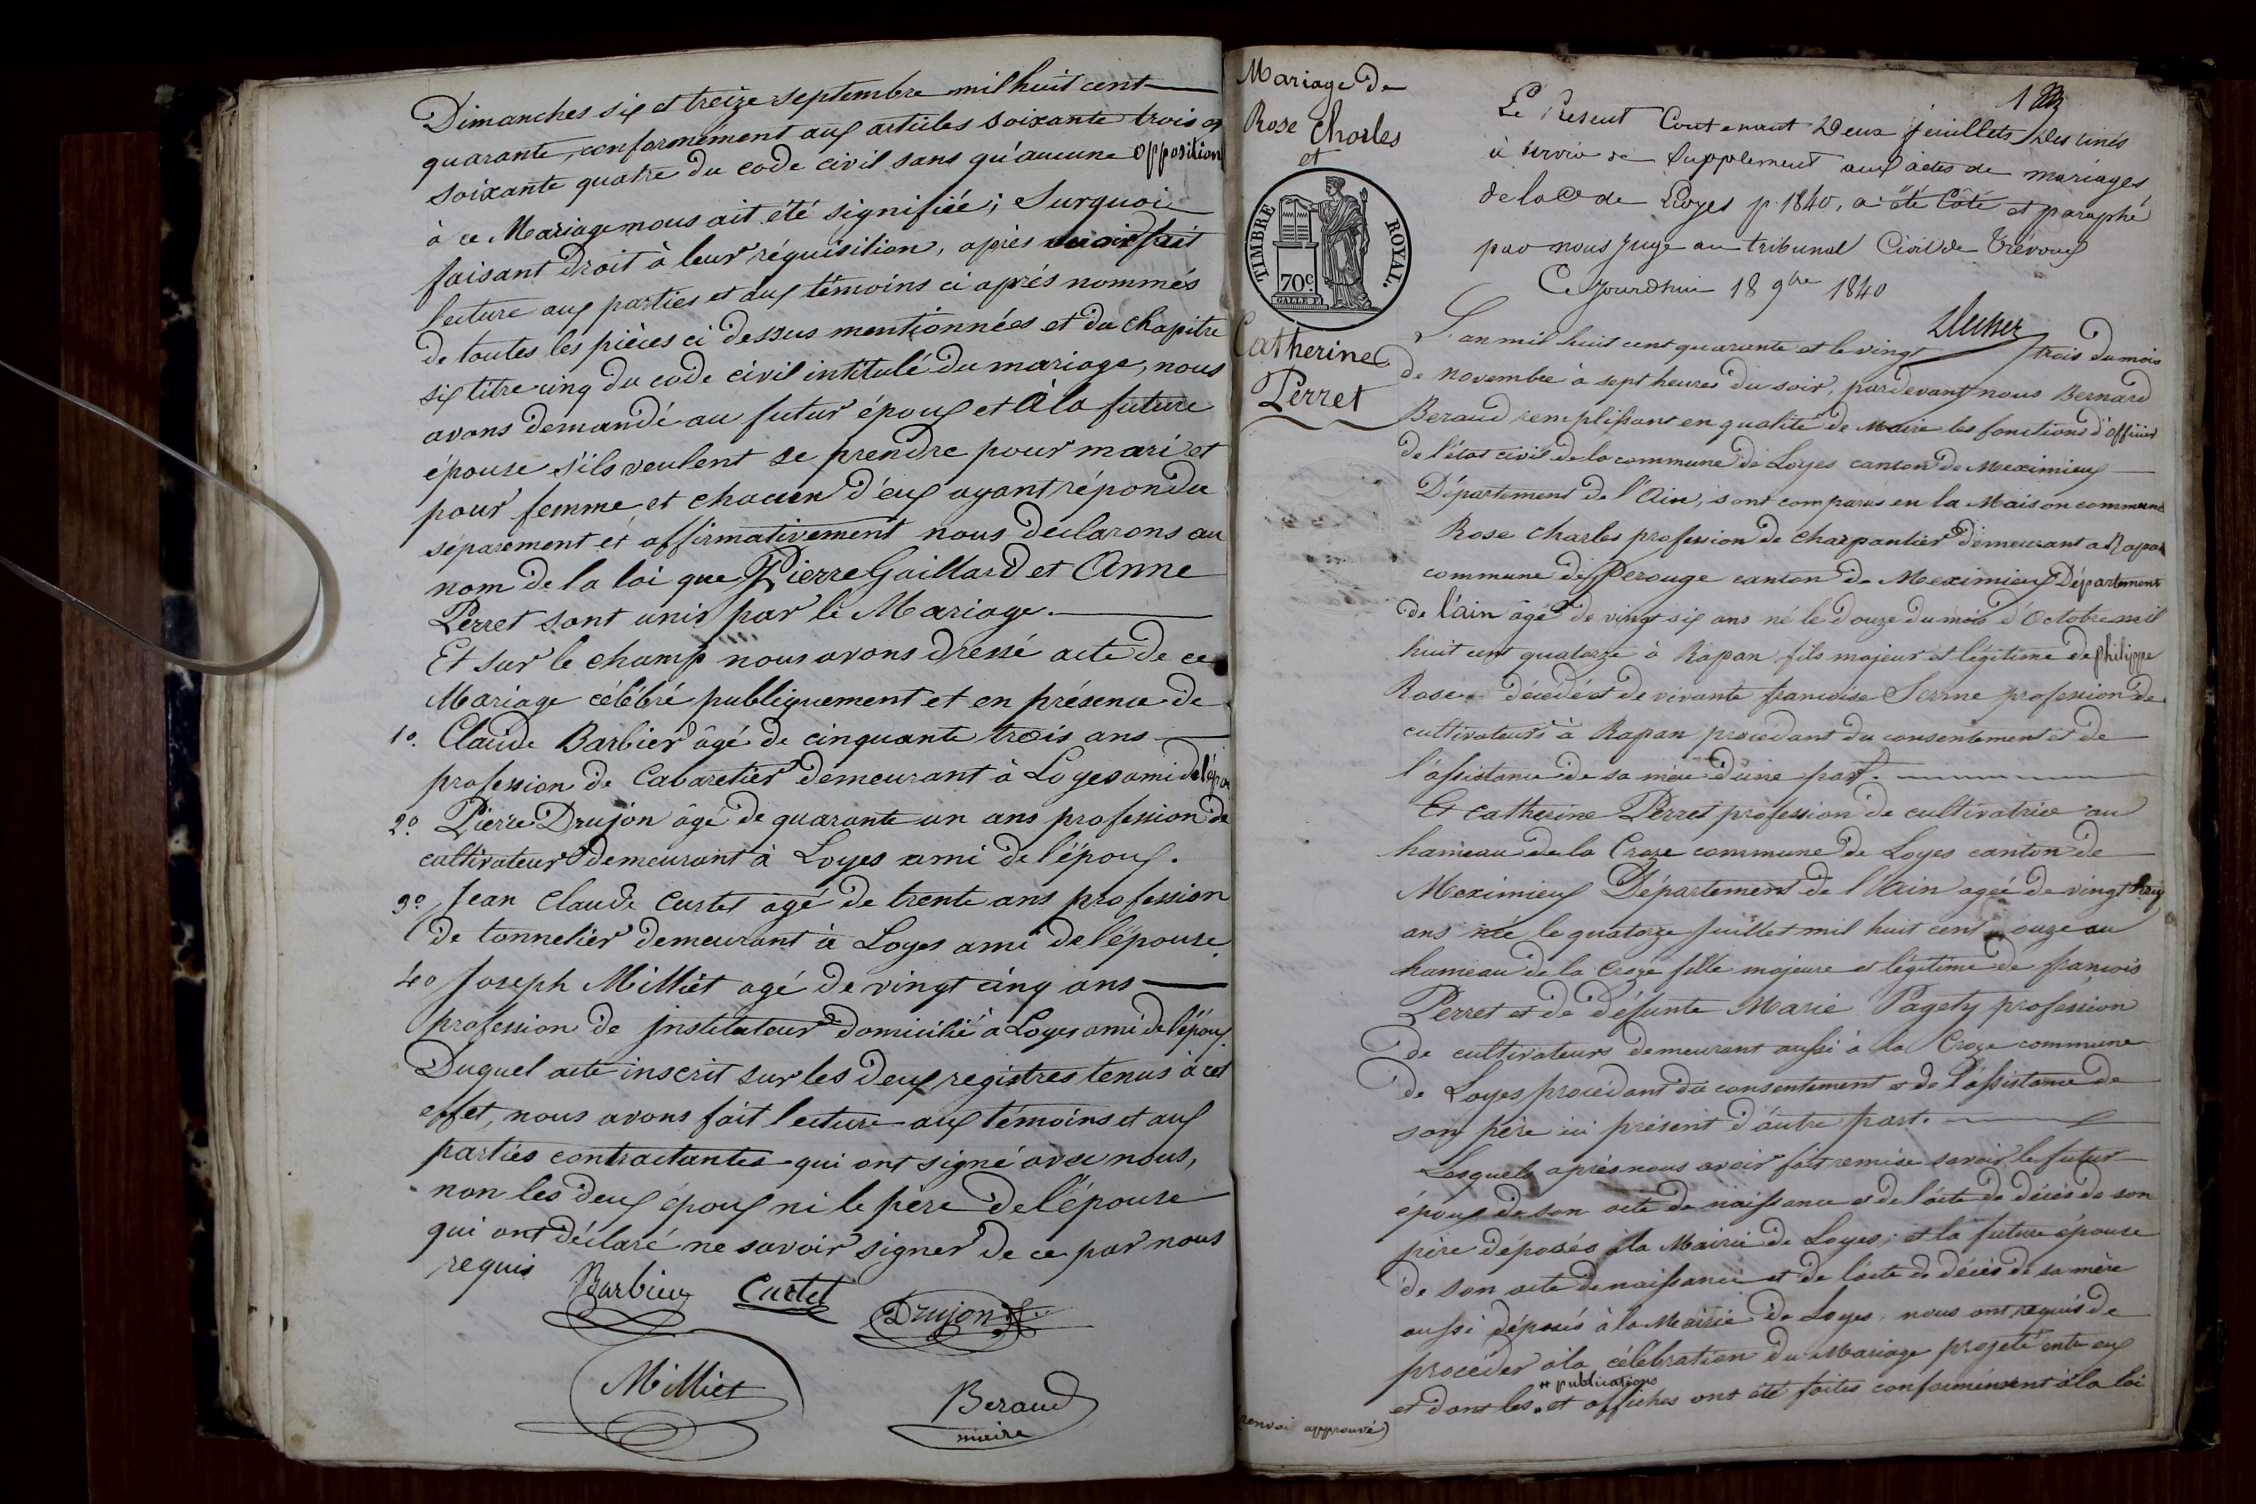 Dimanches six et treize septembre mil huit cent
quarante, conformément aux articles soixante trois et
soixante quatre du code civil sans qu'aucune opposition
à ce Mariage nous ait été signifiée; Surquoi
faisant droit à leur réquisition, après avoir fait
lecture aux parties et aux témoins ci après nommés
de toutes les pièces ci dessus mentionnées et du chapitre
six titre cinq du code civil intitulé du mariage, nous
avons demandé au futur époux et à la future
épouse s'ils veulent se prendre pour mari et
pour femme et chacun d'eux ayant répondu
séparément et affirmativement nous déclarons au
nom de la loi que Pierre Gaillard et Anne
Perret sont unis par le Mariage.
Et sur le champ nous avons dressé acte de ce
Mariage célébré publiquement et en présence de
1º. Claude Barbier âgé de cinquante trois ans
profession de Cabaretier demeurant à Loyes ami de l'époux
2º Pierre Drujon âgé de quarante un ans profession de
cultivateur demeurant à Loyes ami de l'époux.
3º Jean Claude Curtet agé de trente ans profession
de tonnelier demeurant à Loyes ami de l'épouse
4º Joseph Milliet agé de vingt cinq ans
profession de instituteur domicilié à Loyes ami de l'époux.
Duquel acte inscrit sur les deux registres tenus à cet
effet, nous avons fait lecture aux témoins et aux
parties contractantes qui ont signé avec nous,
non les deux époux ni le père de l'épouse
qui ont déclaré ne savoir signer de ce par nous
requis
Barbier Curtet
Drujon
Milliet
Beraud
maire
Mariage de
Rose Charles
et
TIMBRE ROYAL.
70c.
Catherine
Perret
1er
Le Present Contenant Deux feuillets Destinés
à servir de Supplement aux actes de mariages
de la Cne de Loyes p. 1840, a été Côté et paraphé
par nous Juge au tribunal Civil de Trévoux
Ce Jourd'hui 18 9bre 1840
L'an mil huit cent quarante et le vingt trois du mois
de novembre à sept heures du soir, pardevant nous Bernard
Beraud remplissant en qualité de Maire les fonctions d'officier
de l'état civil de la commune de Loyes canton de Meximieux
Département de l'Ain, sont comparus en la Maison commune
Rose Charles profession de charpantier demeurant a Rapan
commune de Perouge canton de Meximieux Département
de l'ain âgé de vingt six ans né le douze du mois d'Octobre mil
huit cent quatorze à Rapan fils majeur et légitime de philippe
Rose décédé et de vivante francoise Serme profession de
cultivateurs à Rapan procédant du consentement et de
l'assistance de sa mère d'une part.
Et Catherine Perret profession de cultivatrice au
hameau de la Croze commune de Loyes canton de
Meximieux Département de l'Ain agée de vingt neuf
ans née le quatorze Juillet mil huit cent onze au
hameau de la Croze fille majeure et légitime de francois
Perret et de défunte Marie Pagety profession
de cultivateurs demeurant aussi à la Croze commune
de Loyes procédant du consentement et de l'assistance de
son père ici présent d'autre part.
Lesquels après nous avoir fait remise savoir le futur
époux de son acte de naissance et de l'acte de décès de son
père déposés à la Mairie de Loyes; et la future épouse
de son acte de naissance et de l'acte de décès de sa mère
aussi déposés à la Mairie de Loyes, nous ont requis de
procéder à la célébration du Mariage projeté entre eux
publications
et dont les et affiches ont été faites conformément à la loi
(renvoi approuvé)